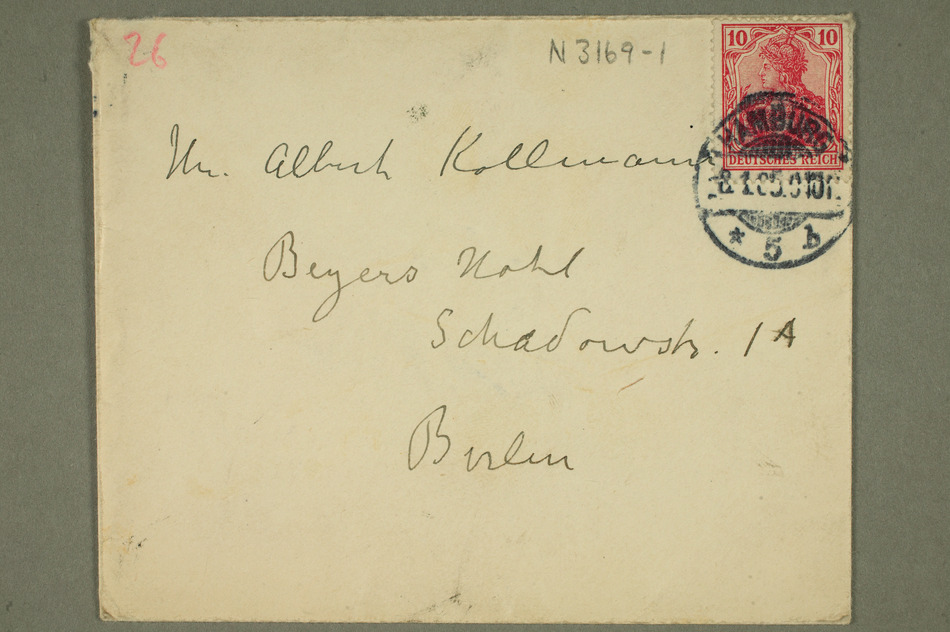 26
N 3169-1
10 10
DEUTSCHES REICH
HAMBURG
8.1.05.
* 5 b
Hr. Albert Kollmann
Beyers Hotel
Schadowstr. 1A
Berlin